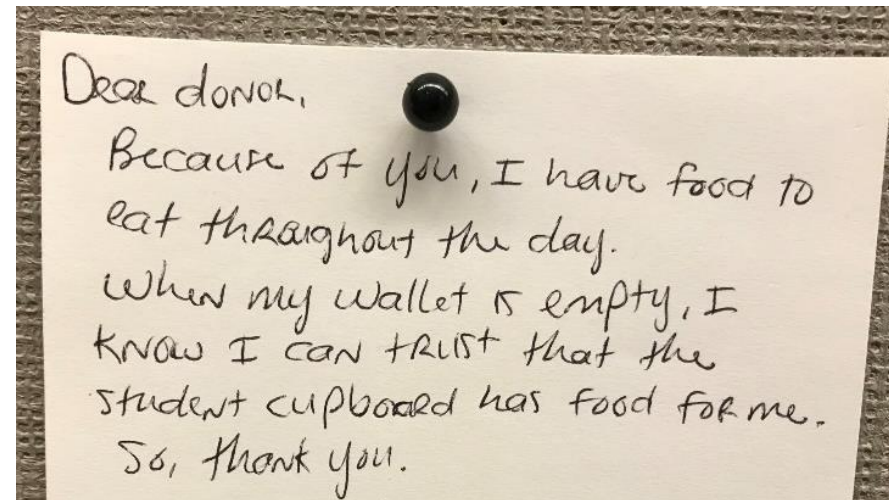 Dear donor,
Because of you, I have food to
eat throughout the day.
When my wallet is empty, I
know I can trust that the
student cupboard has food for me.
So, thank you.